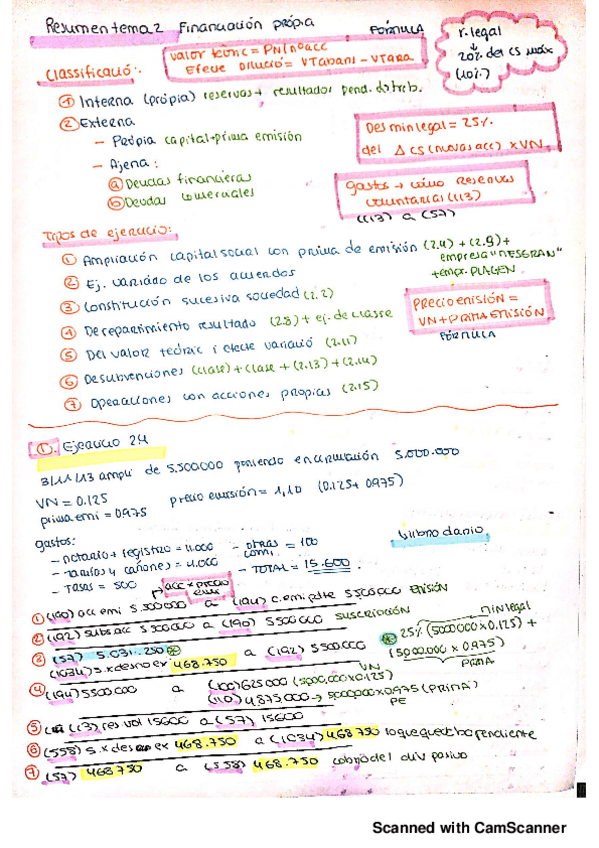 Resumen tema 2 Financiación pròpia
FÓRMULA
r. legal
↓
20% del CS máx
(10%)
Valor teòric = PN/nº acc
Efecte Dilució = VTabans - VTara
Classificació:
① Interna (própia) reservas + resultados pend. distrib.
② Externa
- Própia capital + prima emisión
- Ajena:
ⓐ Deudas financieras
ⓑ Deudas comerciales
Des min legal = 25%
del Δ CS (nuevas acc) x VN
gastos → cómo Reservas
voluntarias (113)
(113) a (57)
Tipos de ejercicio:
① Ampliación capital social con prima de emisión (2.4) + (2.9) +
empresa "NESGRAN"
+ empr. PLAGEN
② Ej. variado de los acuerdos
③ Constitución sucesiva sociedad (2.2)
④ De repartimiento resultado (2.8) + ej. de classe
⑤ Del valor teòric i efecte variació (2.11)
⑥ De subvenciones (clase) + clase + (2.13) + (2.14)
⑦ Operaciones con acciones propias (2.15)
PRECIO emisión =
VN + PRIMA EMISIÓN
FÓRMULA
①. Ejercicio 2.4
31/11/13 ampli de 5.500.000 poniendo en circulación 5.000.000
VN = 0.125 precio emisión = 1,10 (0.125 + 0975)
prima emi = 0975
gastos:
- notario + registro = 11.000 - otras comi. = 100
- = 4.000 - TOTAL = 15.600
- Tasas = 500
llibro diario
acc x precio emisi
① (190) acc emi 5.500.000 a (194) c. emi pdte 5500000 EMISIÓN
② (192) subs acc 5500000 a (190) 5500000 SUSCRIPCIÓN
③ (57) 5.031.250 a (192) 5500000
(1034) s.x desno ex 468.750
25% (5000000 x 0.125) +
min legal
(5000.000 x 0.975)
PRIMA
④ (194) 5500000 a (100) 625000 (5000,000 x 0.125)
VN
(110) 4875000 → 5000000 x 0975 (PRIMA)
PE
⑤ (113) res vol 15600 a (57) 15600
⑥ (558) s.x desem ex 468.750 a (1034) 468 750 lo que quedaba pendiente
⑦ (57) 468.750 a (558) 468.750 cobro del div pasivo
Scanned with CamScanner